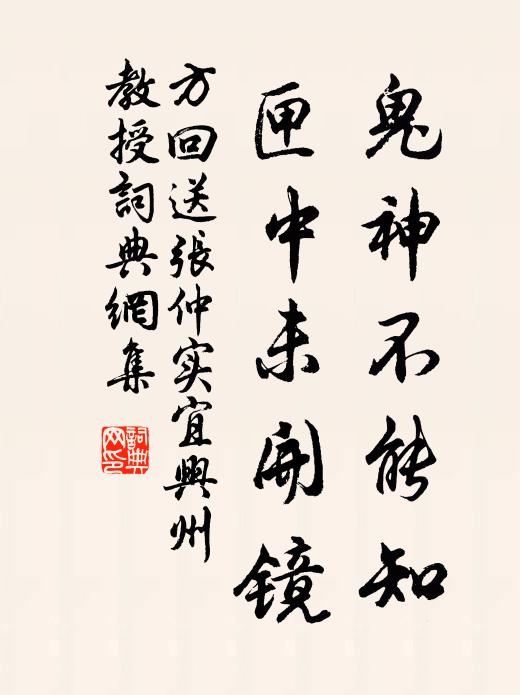 鬼神不能知
匣中未開镜
方回送張仲实宜興州
教授詞典網集
詞典网印